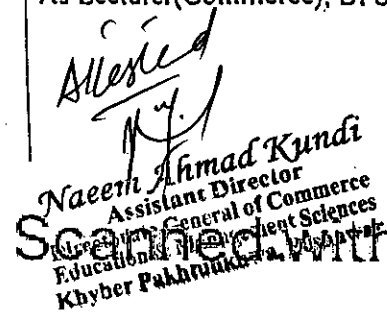 As Lecturer(Commerce), B
Attested
Naeem Ahmad Kundi
Assistant Director
General of Commerce
Education & Management Sciences
Khyber Pakhtunkhwa, Peshawar.
Scanned with